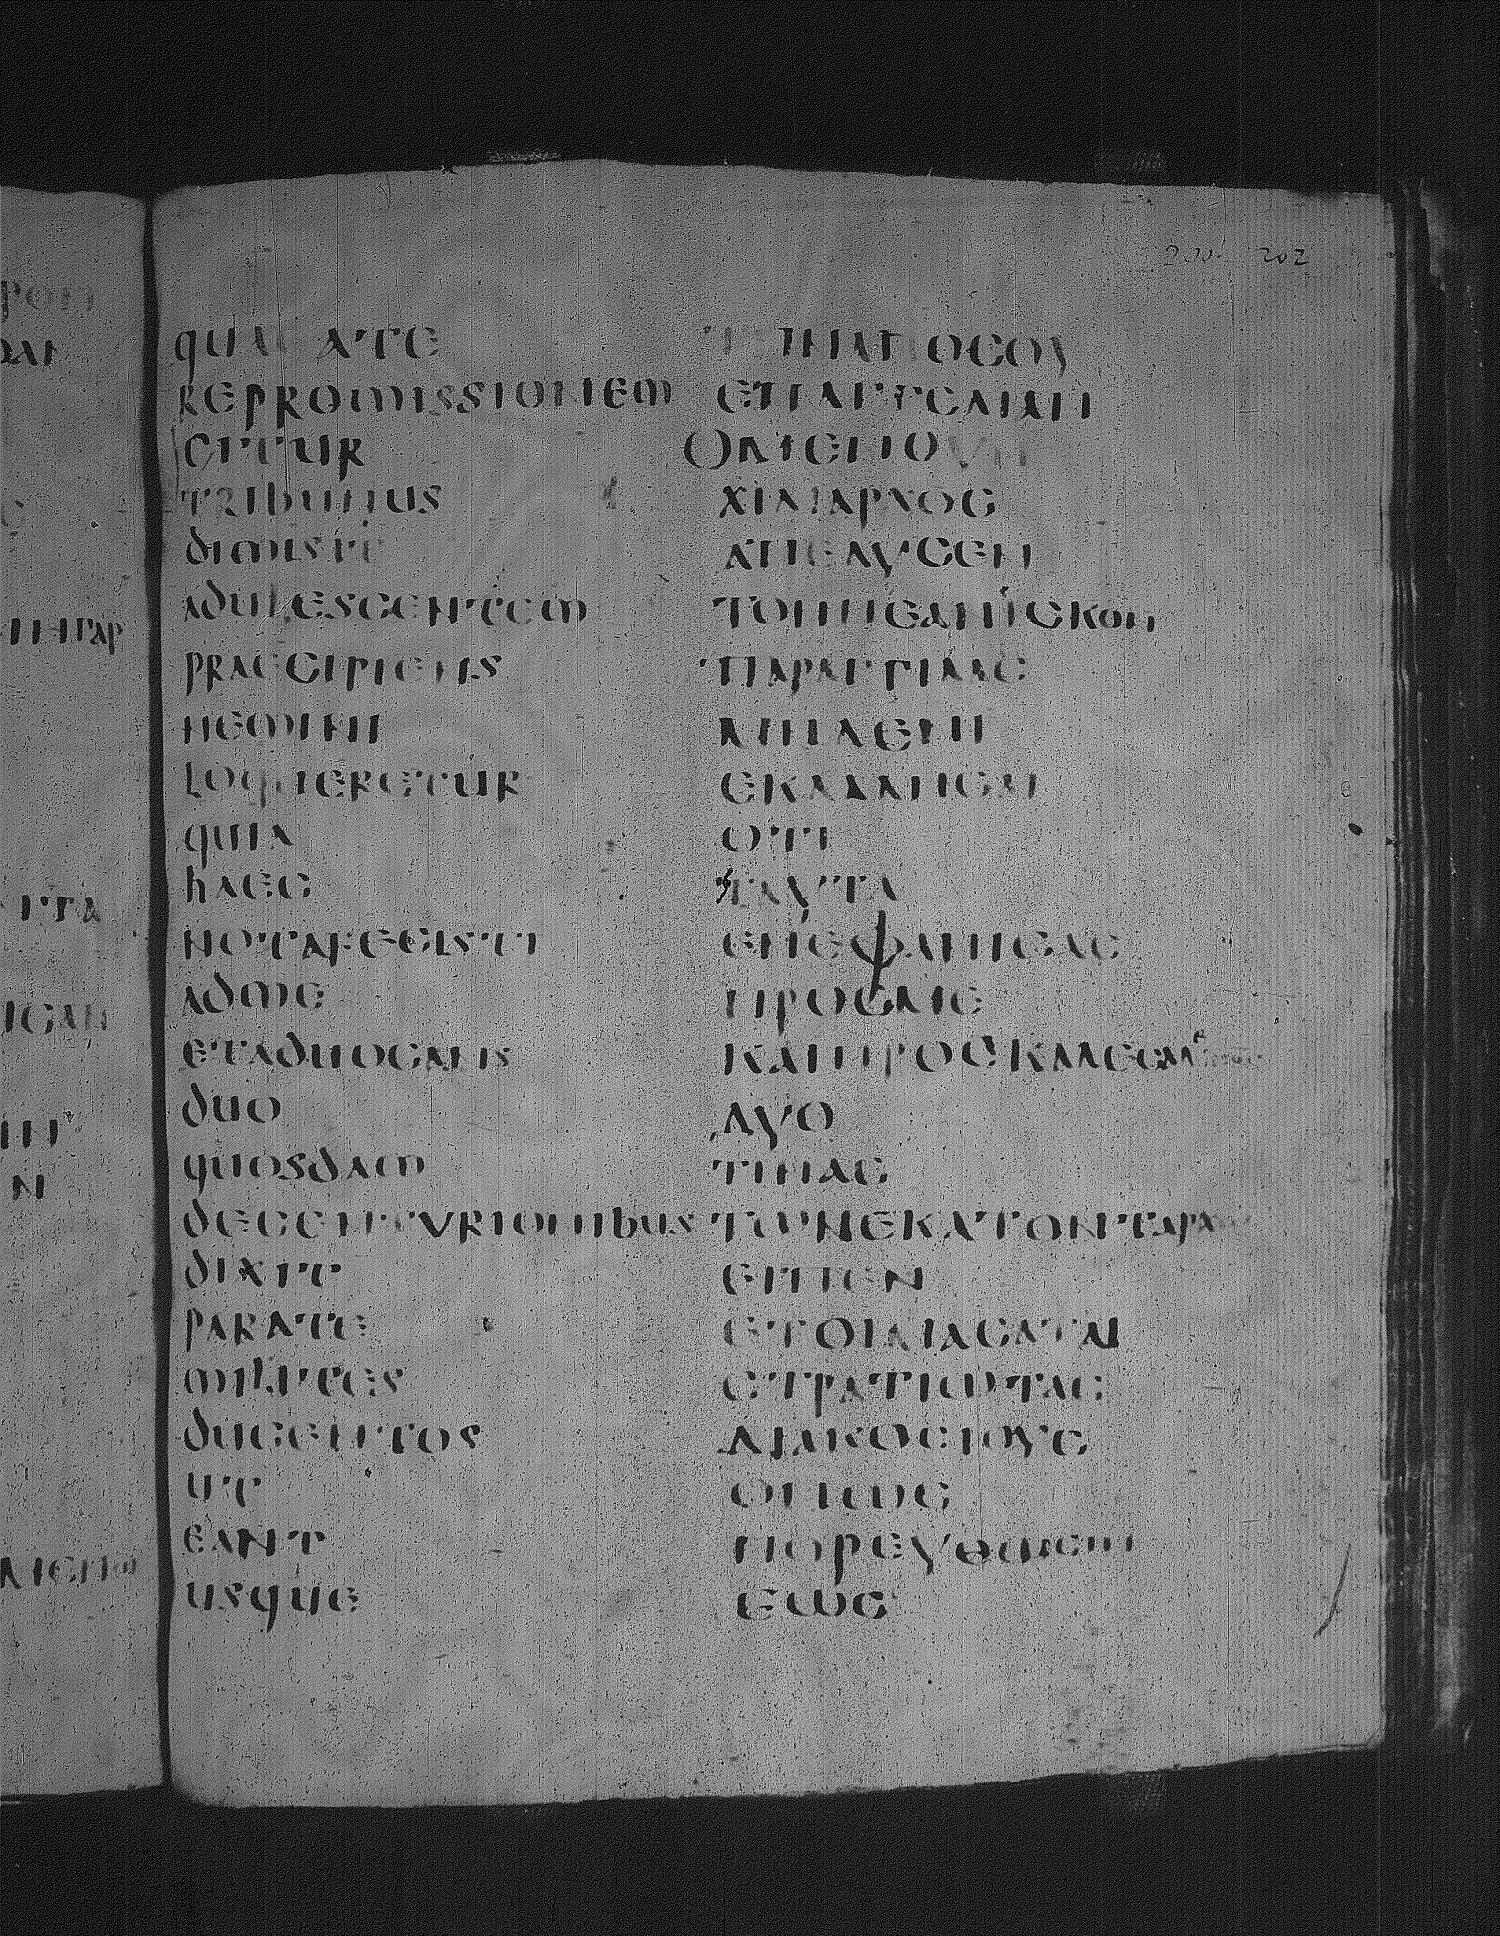 quae ate
repromissionem
igitur
tribunus
dimisit
adulescentem
praecipiens
nemini
loqueretur
quia
haec
notafecisti
adme
etaduocans
duo
quosdam
decenturionibus
dixit
parate
milites
ducentos
ut
eant
usque
202
ΤΗΝΑΠΟϹΟΥ
ΕΠΑΓΓΕΛΙΑΝ
ΟΜΕΝΟΥΝ
ΧΙΛΙΑΡΧΟϹ
ΑΠΕΛΥϹΕΝ
ΤΟΝΝΕΑΝΙϹΚΟΝ
ΠΑΡΑΓΓΙΛΑϹ
ΜΗΔΕΝΙ
ΕΚΛΑΛΗϹΑΙ
ΟΤΙ
ΤΑΥΤΑ
ΕΝΕΦΑΝΗϹΑϹ
ΠΡΟϹΜΕ
ΚΑΙΠΡΟϹΚΑΛΕϹΑΜΕΝΟϹ
ΔΥΟ
ΤΙΝΑϹ
ΤΩΝΕΚΑΤΟΝΤΑΡΧ
ΕΙΠΕΝ
ΕΤΟΙΜΑϹΑΤΑΙ
ϹΤΡΑΤΙΩΤΑϹ
ΔΙΑΚΟϹΙΟΥϹ
ΟΠΩϹ
ΠΟΡΕΥΘΩϹΙΝ
ΕΩϹ